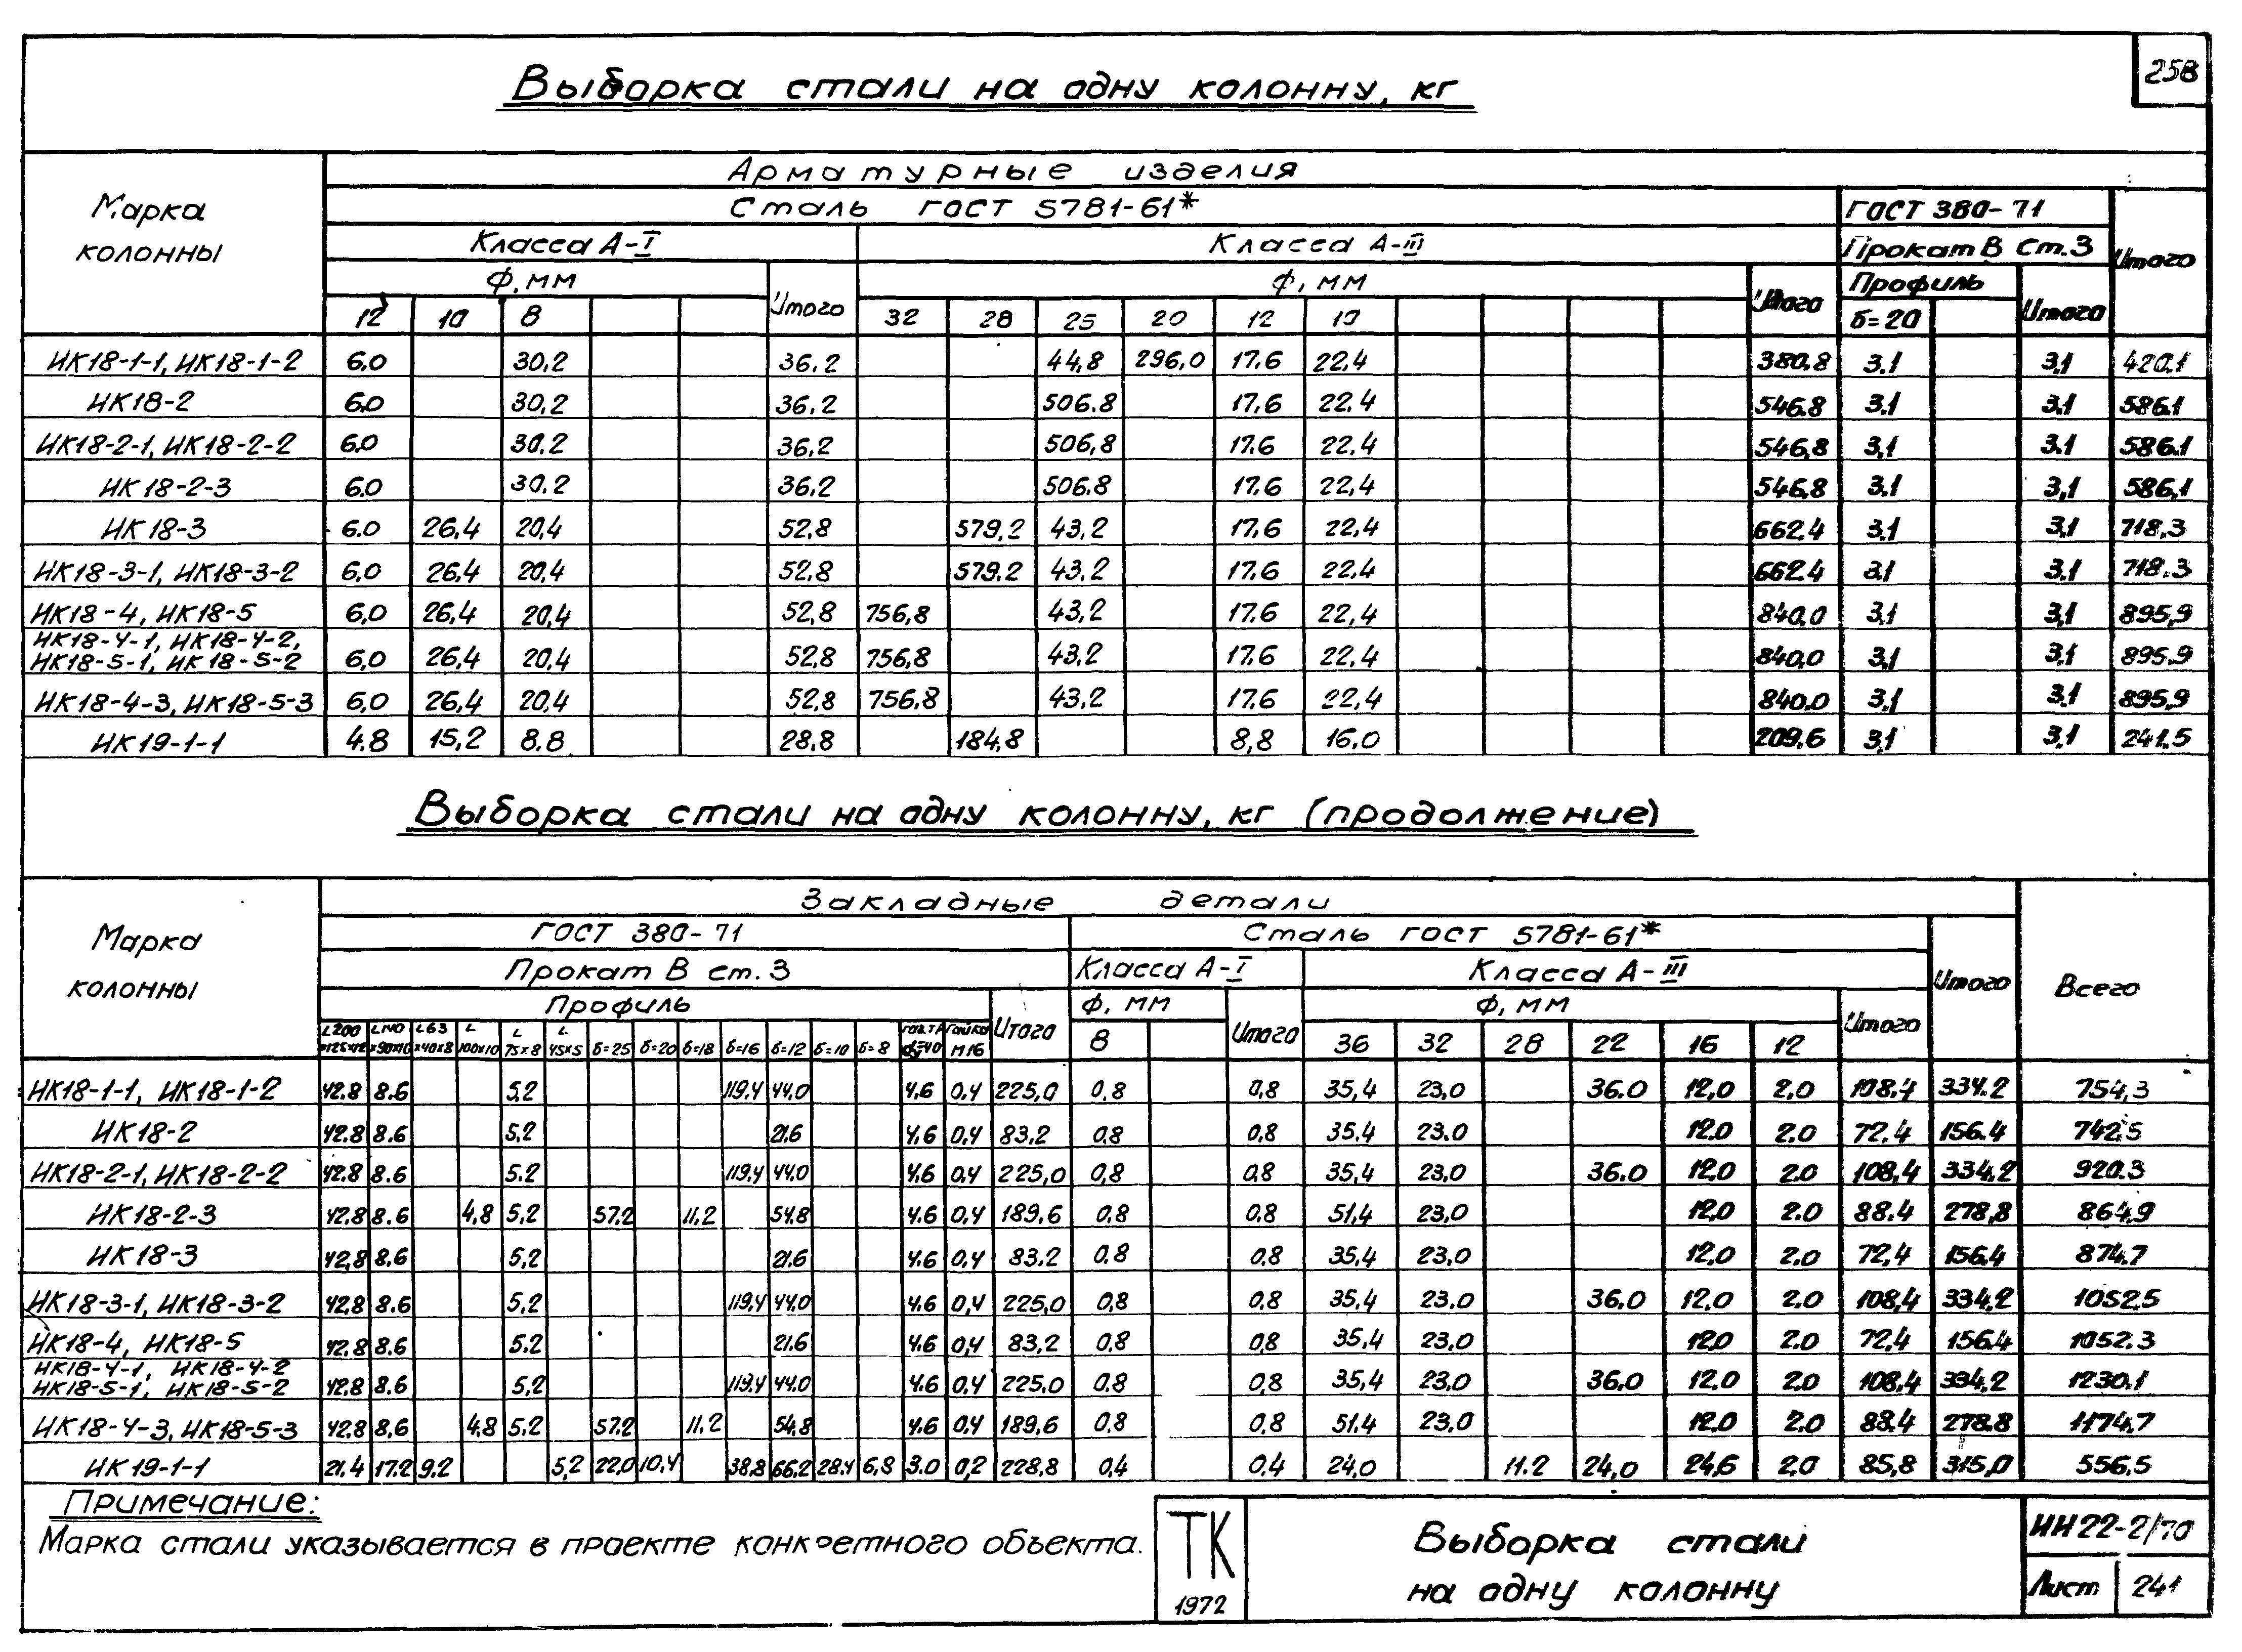 25В
Выборка стали на одну колонну, кг
Марка колонны
Арматурные изделия
Сталь ГОСТ 5781-61* ГОСТ 380-71 Итого
Класса А-I Класса А-III Прокат В Ст.3
Ф, мм Итого Ф, мм Итого Профиль Итого
12 10 8 32 28 25 20 12 10 δ=20
ИК18-1-1, ИК18-1-2 6.0 30,2 36,2 44,8 296,0 17.6 22,4 380,8 3.1 3,1 420.1
ИК18-2 6.0 30,2 36,2 506.8 17.6 22,4 546.8 3.1 3.1 586.1
ИК18-2-1, ИК18-2-2 6.0 30.2 36,2 506,8 17.6 22,4 546,8 3,1 3.1 586.1
ИК18-2-3 6.0 30.2 36.2 506.8 17.6 22,4 546.8 3.1 3,1 586,1
ИК18-3 6.0 26,4 20,4 52,8 579,2 43,2 17.6 22,4 662.4 3.1 3.1 718,3
ИК18-3-1, ИК18-3-2 6,0 26,4 20,4 52,8 579.2 43,2 17.6 22,4 662.4 3.1 3.1 718.3
ИК18-4, ИК18-5 6,0 26,4 20,4 52,8 756,8 43,2 17.6 22,4 840,0 3.1 3,1 895,9
ИК18-4-1, ИК18-4-2,
ИК18-5-1, ИК18-5-2 6,0 26,4 20,4 52,8 756,8 43,2 17.6 22,4 840,0 3.1 3.1 895.9
ИК18-4-3, ИК18-5-3 6,0 26,4 20,4 52,8 756,8 43,2 17.6 22,4 840.0 3.1 3.1 895,9
ИК19-1-1 4.8 15,2 8.8 28.8 184,8 8,8 16,0 209.6 3,1 3.1 241.5
Выборка стали на одну колонну, кг (продолжение)
Марка колонны
Закладные детали Всего
ГОСТ 380-71 Сталь ГОСТ 5781-61* Итого
Прокат В ст. 3 Класса А-I Класса А-III
Профиль Итого Ф, мм Итого Ф, мм Итого
L200×125×12 L140×90×10 L63×40×8 L100×10 L75×8 L45×5 δ=25 δ=20 δ=18 δ=16 δ=12 δ=10 δ=8 Гайка М16 8 36 32 28 22 16 12
ИК18-1-1, ИК18-1-2 42.8 8.6 5,2 119,4 44,0 4,6 0,4 225,0 0,8 0,8 35,4 23,0 36.0 12,0 2,0 108,4 334.2 754,3
ИК18-2 42.8 8.6 5,2 21.6 4.6 0,4 83,2 0,8 0,8 35.4 23.0 12.0 2.0 72.4 156.4 742.5
ИК18-2-1, ИК18-2-2 42.8 8.6 5.2 119,4 44,0 4.6 0,4 225,0 0,8 0,8 35,4 23,0 36.0 12.0 2.0 108,4 334.2 920.3
ИК18-2-3 42.8 8.6 4,8 5,2 57.2 11,2 54.8 4.6 0,4 189,6 0,8 0,8 51,4 23,0 12,0 2.0 88.4 278,8 864.9
ИК18-3 42,8 8.6 5,2 21.6 4.6 0,4 83.2 0.8 0,8 35.4 23,0 12,0 2,0 72,4 156.4 874.7
ИК18-3-1, ИК18-3-2 42.8 8.6 5,2 119,4 44,0 4.6 0,4 225,0 0,8 0,8 35,4 23.0 36.0 12,0 2.0 108,4 334,2 1052.5
ИК18-4, ИК18-5 42.8 8.6 5.2 21.6 4.6 0,4 83,2 0,8 0,8 35,4 23,0 12.0 2.0 72,4 156.4 1052.3
ИК18-4-1, ИК18-4-2
ИК18-5-1, ИК18-5-2 42.8 8.6 5,2 119.4 44.0 4.6 0,4 225,0 0.8 0,8 35,4 23,0 36,0 12.0 2.0 108,4 334,2 1230.1
ИК18-4-3, ИК18-5-3 42.8 8,6 4,8 5,2 57.2 11,2 54,8 4.6 0,4 189,6 0,8 0,8 51.4 23,0 12.0 2.0 88.4 278.8 1174.7
ИК19-1-1 21,4 17.2 9.2 5,2 22,0 10,4 38.8 66.2 28.4 6,8 3.0 0,2 228,8 0,4 0.4 24,0 11.2 24,0 24,6 2,0 85,8 315,0 556,5
Примечание:
Марка стали указывается в проекте конкретного объекта.
ТК
1972
Выборка стали
на одну колонну
ИИ22-2/70
Лист 241